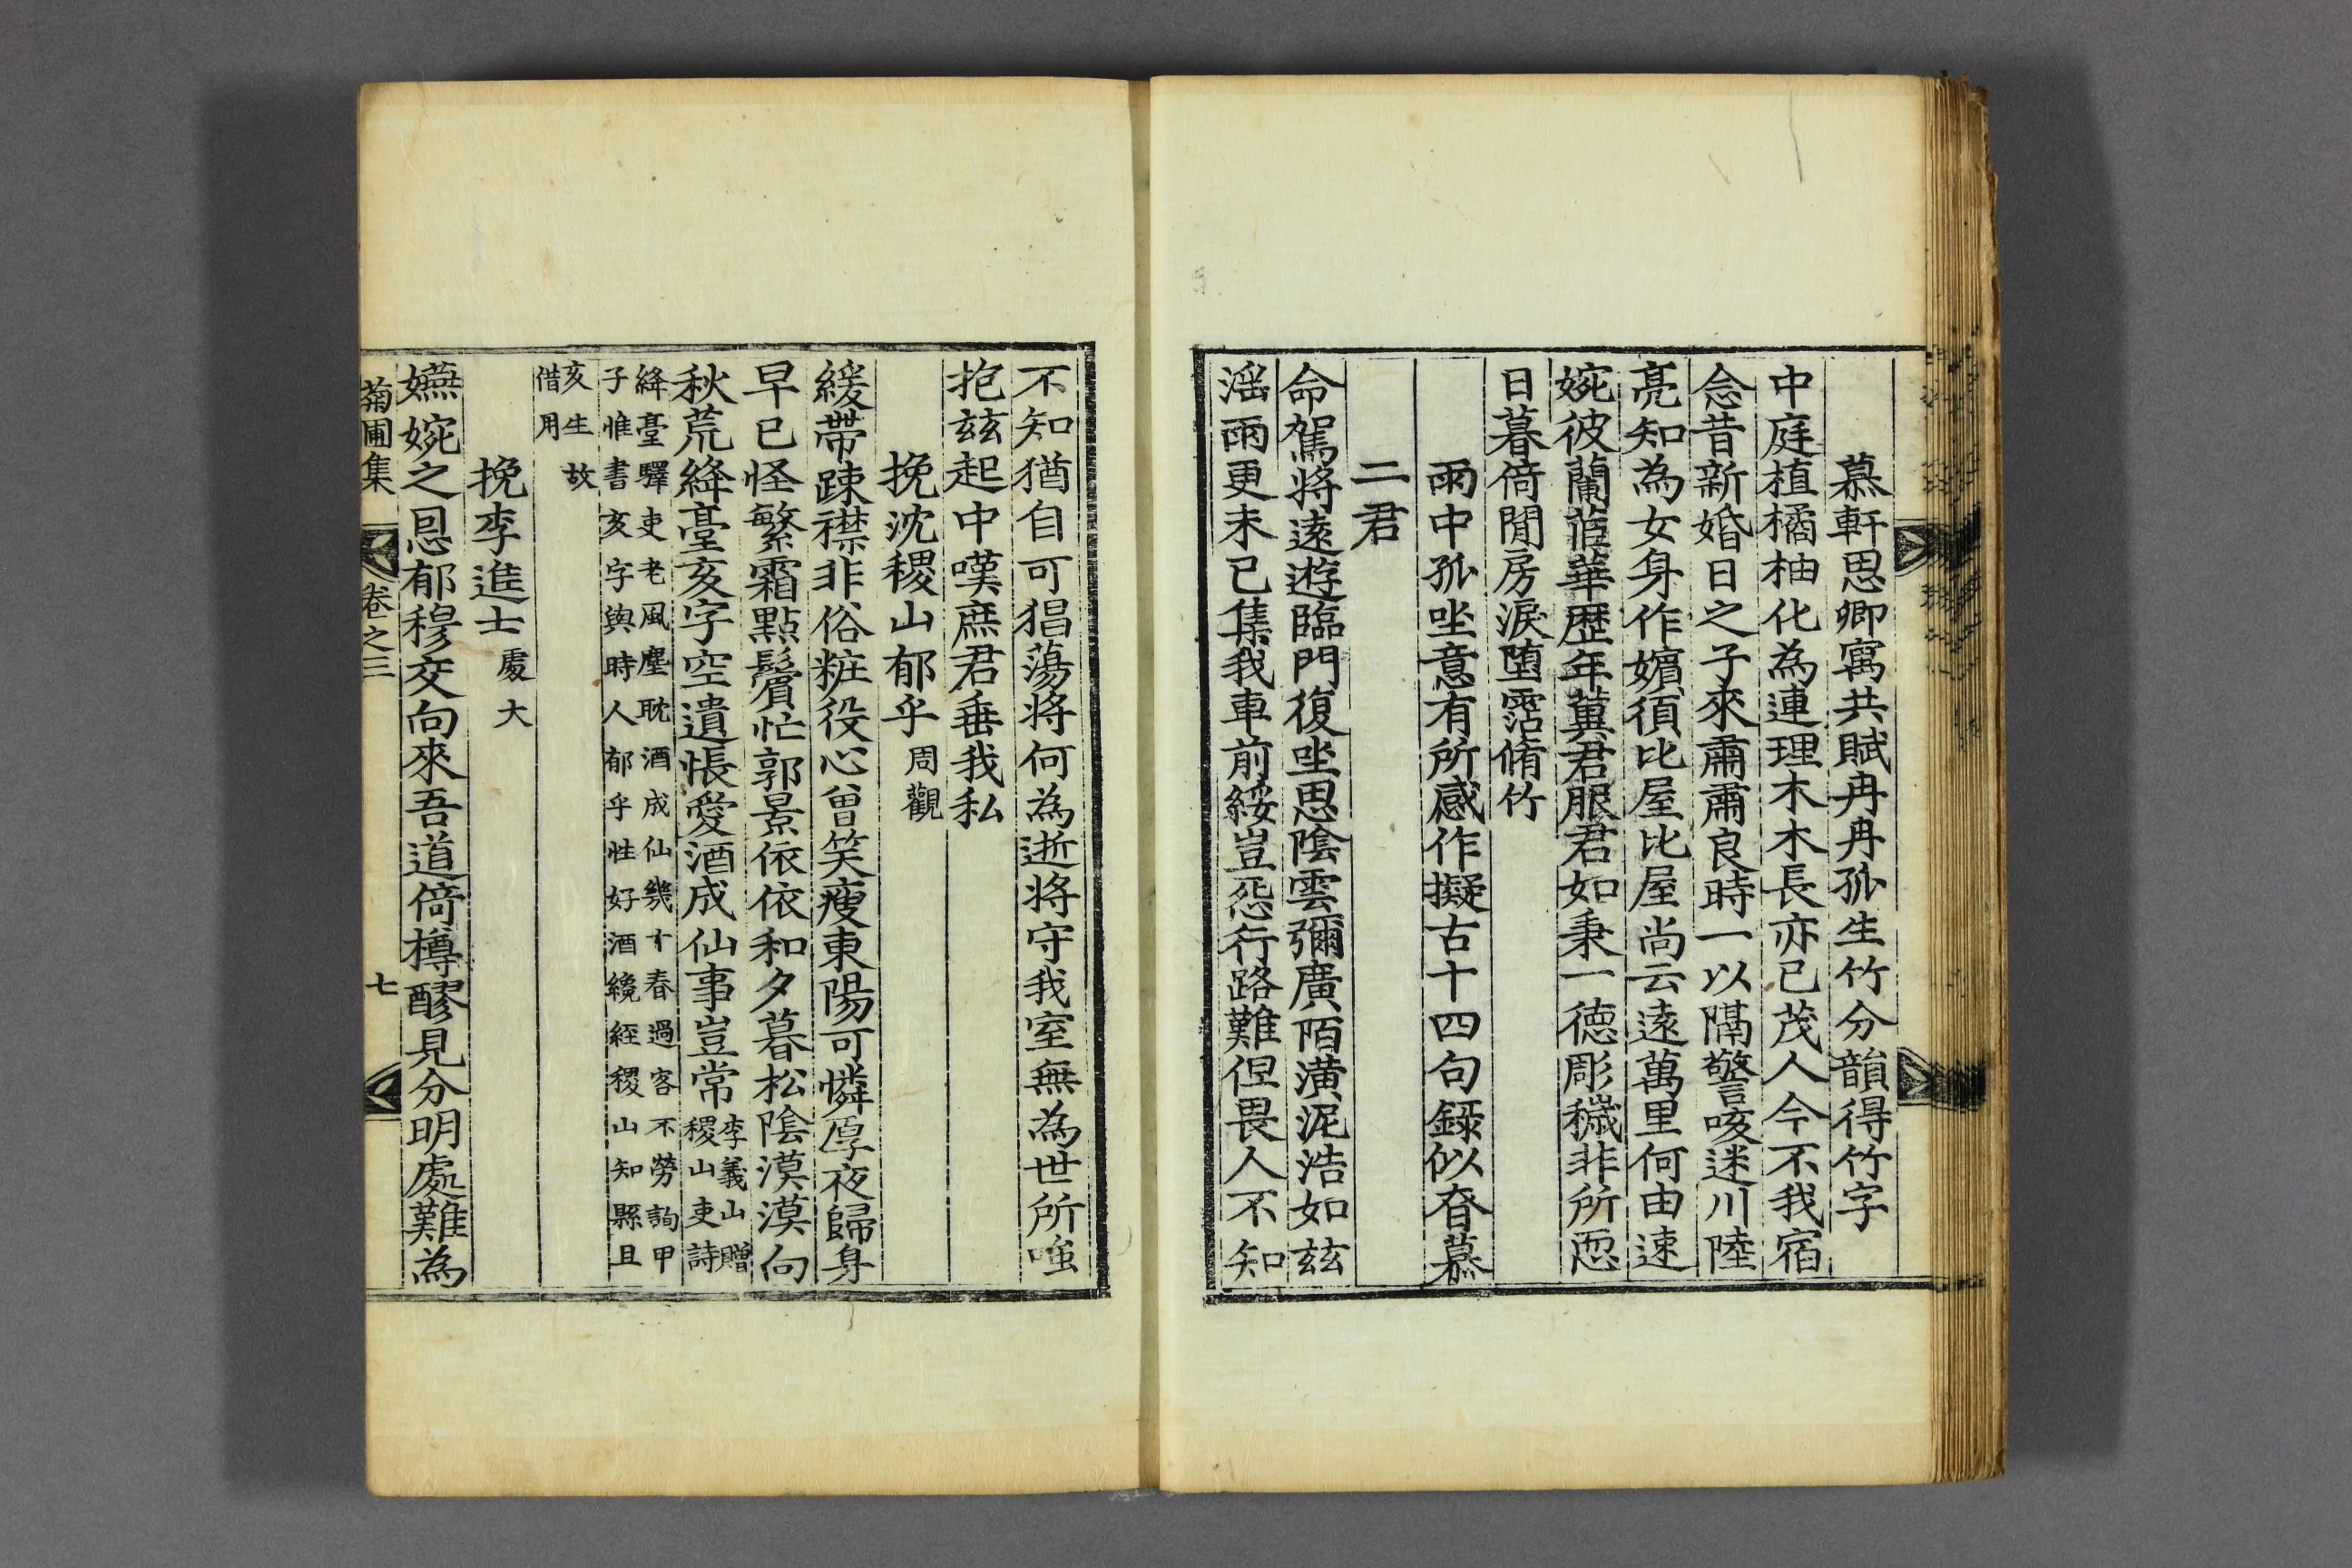 慕軒思卿寓共賦冉冉孤生竹分韻得竹字
中庭植橘柚化為連理木木長亦已茂人今不我宿
念昔新婚日之子來肅肅良時一以隔警咳迷川陸
亮知為女身作嬪須比屋比屋尚云遠萬里何由速
婉彼蘭茝華歷年冀君服君如秉一德彫穢非所恧
日暮倚閒房淚墮霑脩竹
雨中孤坐意有所感作擬古十四句錄似春慕
二君
命駕將遠遊臨門復坐思陰雲彌廣陌潢泥浩如玆
滛雨更未已集我車前綏豈怨行路難但畏人不知
不知猶自可猖蕩將何為逝將守我室無為世所嗤
抱玆起中嘆庶君垂我私
挽沈稷山郁乎周觀
緩帶踈襟非俗粧役心曾笑瘦東陽可憐厚夜歸身
早已怪繁霜點鬢忙郭景依依和夕暮松陰漠漠向
秋荒絳臺亥字空遺悵愛酒成仙事豈常李義山贈
稷山吏詩
絳臺驛吏老風塵耽酒成仙幾十春過客不勞詢甲
子惟書亥字與時人郁乎性好酒纔經稷山知縣且
亥生故
借用
挽李進士處大
嬿婉之恩郁穆交向來吾道倚樽醪見分明處難為
菊圃集 卷之三 七